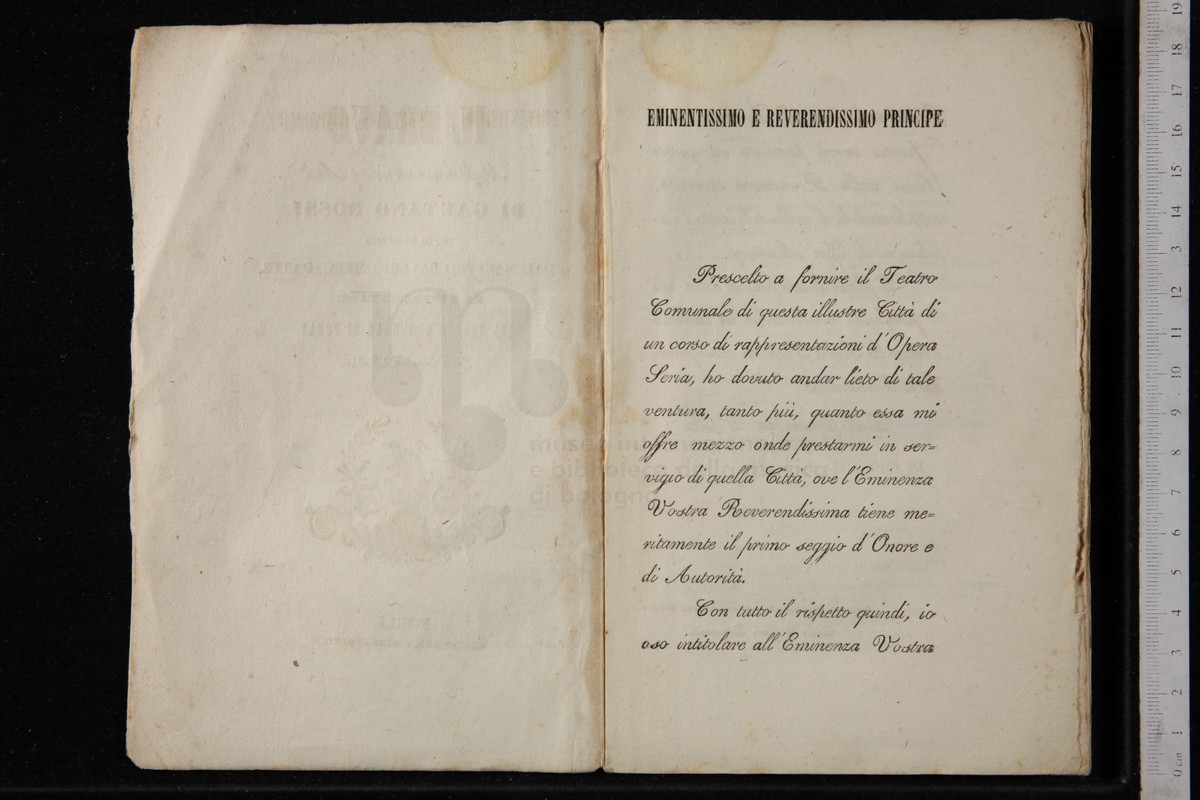 EMINENTISSIMO E REVERENDISSIMO PRINCIPE
Prescelto a fornire il Teatro
Comunale di questa illustre Città di
un corso di rappresentazioni d'Opera
Seria, ho dovuto andar lieto di tale
ventura, tanto più, quanto essa mi
offre mezzo onde prestarmi in ser=
vigio di quella Città, ove l'Eminenza
Vostra Reverendissima tiene me=
ritamente il primo seggio d'Onore e
di Autorità.
Con tutto il rispetto quindi, io
oso intitolare all'Eminenza Vostra